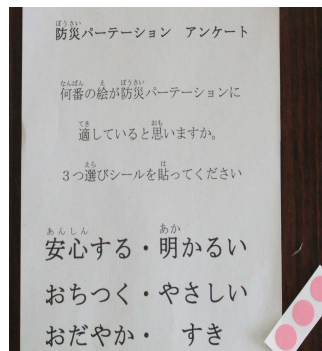 防災パーテーション　アンケート
何番の絵が防災パーテーションに
適していると思いますか。
３つ選びシールを貼ってください
安心する・明かるい
おちつく・やさしい
おだやか・　すき